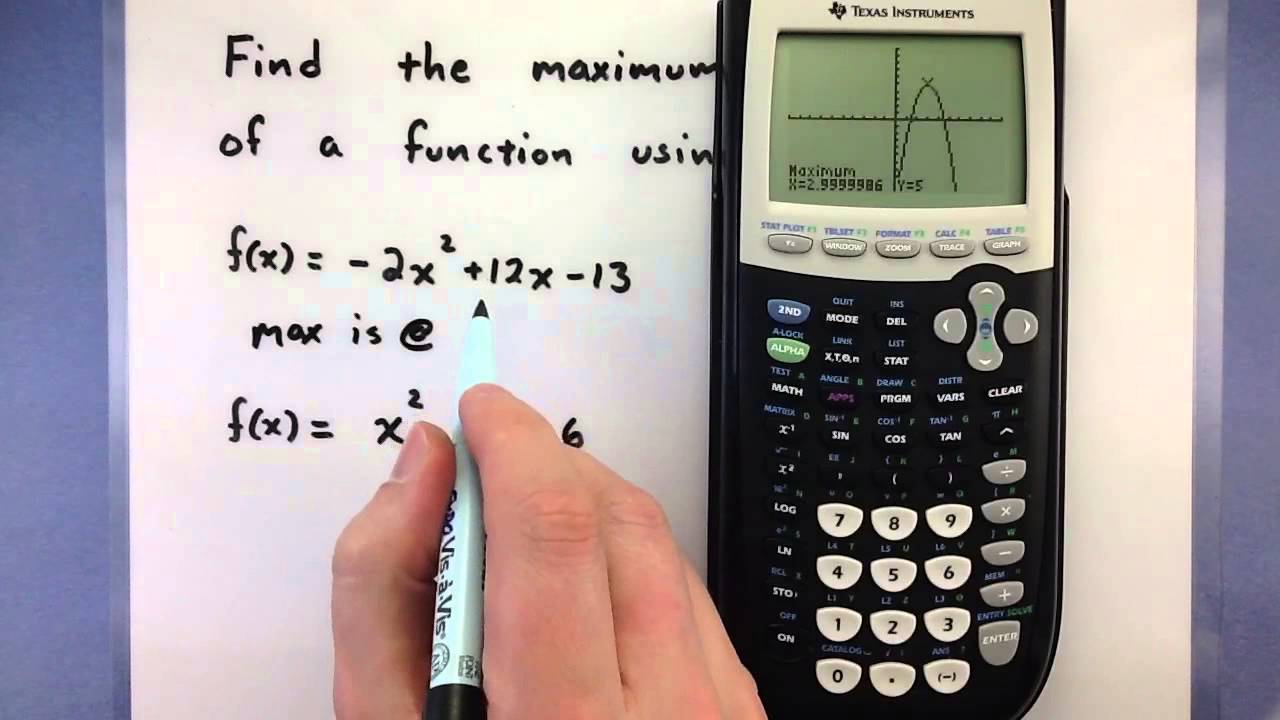 Find the maximum
of a function using
f(x) = -2x² +12x -13
max is @
f(x) = x² 6
TEXAS INSTRUMENTS
Maximum
X=2.9999986 Y=5
STAT PLOT F1 TBLSET F2 FORMAT F3 CALC F4 TABLE F5
Y= WINDOW ZOOM TRACE GRAPH
QUIT INS
2ND MODE DEL
A-LOCK LINK LIST
ALPHA X,T,Θ,n STAT
TEST A ANGLE B DRAW C DISTR
MATH APPS PRGM VARS CLEAR
MATRIX D SIN⁻¹ E COS⁻¹ F TAN⁻¹ G π H
x⁻¹ SIN COS TAN ^
√ I EE J { K } L e M
x² , ( ) ÷
10ˣ N u O v P w Q [ R
LOG 7 8 9 ×
eˣ S L4 T L5 U L6 V ] W
LN 4 5 6 −
RCL X L1 Y L2 Z L3 θ MEM "
STO 1 2 3 +
OFF CATALOG i : ANS ? ENTRY SOLVE
ON 0 . (-) ENTER
Vis.à.Vis